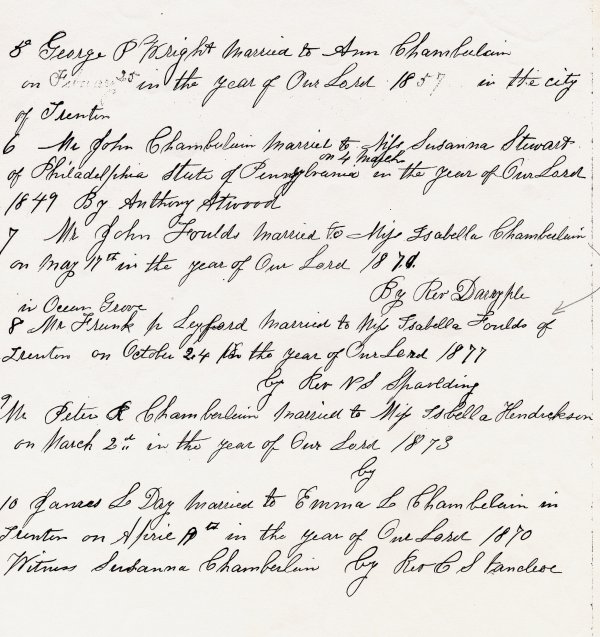 8 George P Wright Married to Ann Chamberlain
on 25 in the year of Our Lord 1857 in the city
of Trenton
6 Mr John Chamberlain married to Miss Susanna Stewart
on 4 March
of Philadelphia State of Pennsylvania in the year of Our Lord
1849 By Anthony Atwood
7 Mr John Foulds Married to Miss Isabella Chamberlain
on May 17th in the year of Our Lord 187
By Rev
in Ocean Grove
8 Mr Frank Married to Miss Isabella Foulds of
Trenton on October 24 in the year of Our Lord 1877
by Rev N S Spaulding
9 Mr Peter R Chamberlain Married to Miss Isbella Hendrickson
on March 2d in the year of Our Lord 1873
by
10 James L Day Married to Emma L Chambelain in
Trenton on in the year of Our Lord 1870
Witness Susanna Chamberlin by Rev C S